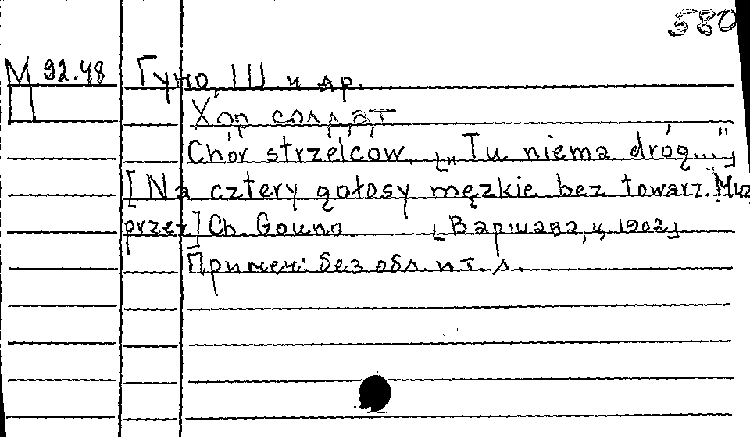 580
М 92.48 Гуно, Ш и др.
П Хор солдат
Chór strzelców. [„Tu niema dróg..."]
[Na cztery gołosy męzkie bez towarz. Muz
przez] Ch. Gouno. [Варшава, ц. 1902]
Примеч: без обл. и т. л.